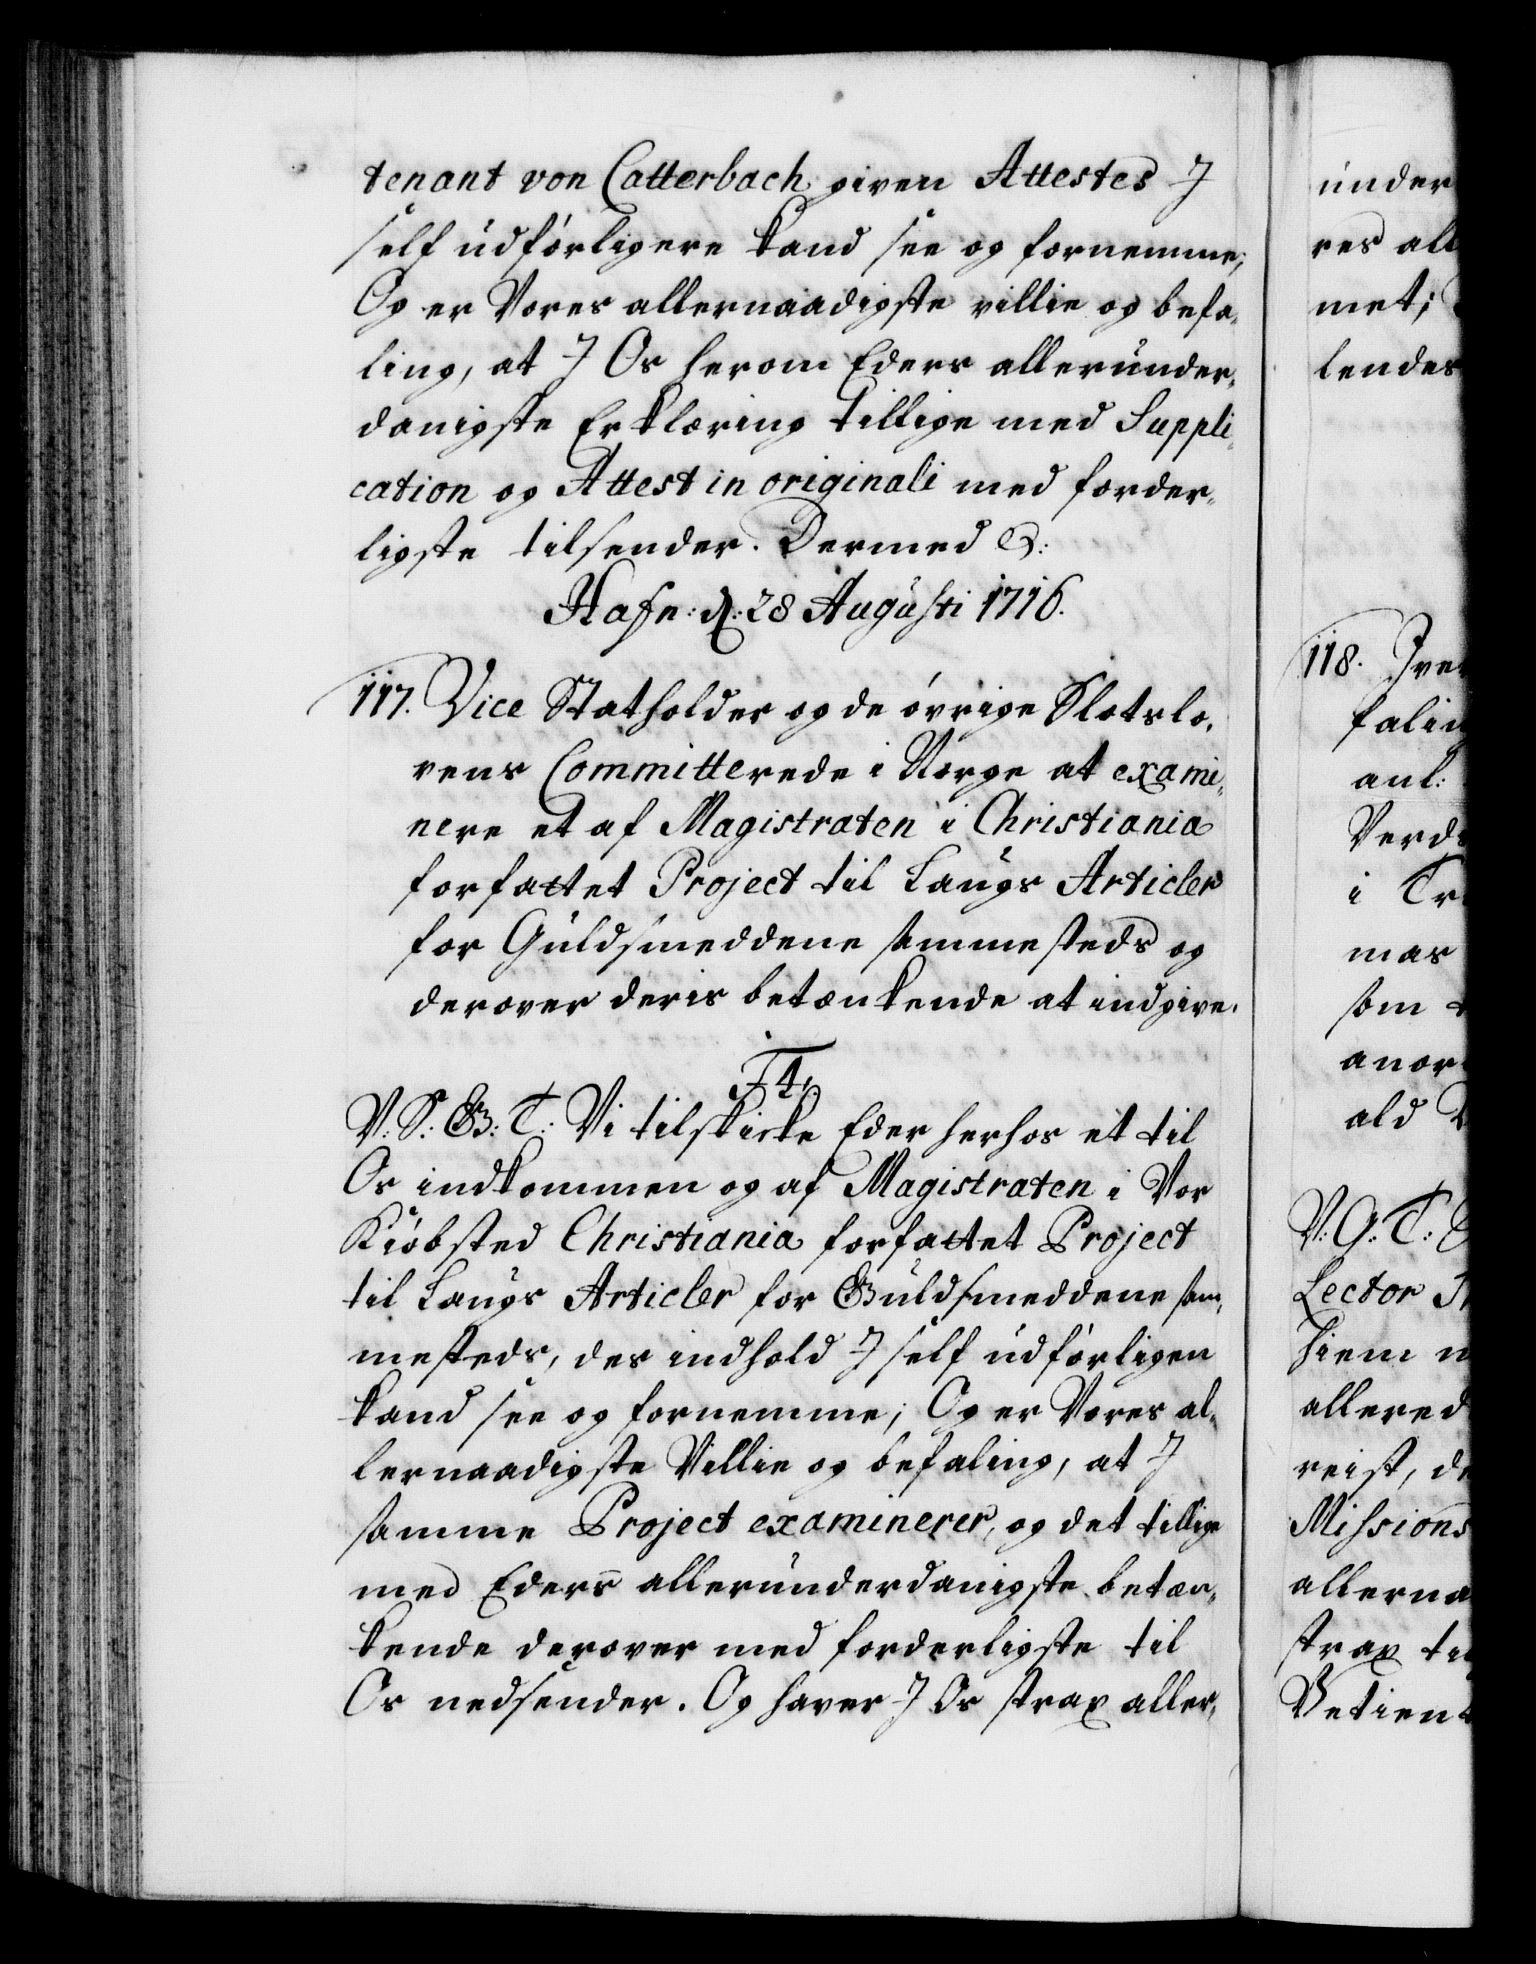 tenant von Catterbach given Attestes J
self udførligere kand see og fornemme;
Og er Vores allernaadigste villie og befa-
ling, at J Os herom Eders allerunder-
danigste Erklæring tillige med Suppli-
cation og Attest in originali med forder-
ligste tilsender. Dermed &:
Hafn: d: 28 Augusti 1716.
117. Vice Statholder og de øvrige Slotslo-
vens Committerede i Norge at exami-
nere et af Magistraten i Christiania
forfattet Project til Laugs Articler
for Guldsmeddene sammesteds og
derover deris betænkende at indgive.
F 4.
V: S: G: T: Vi tilskicke Eder herhos et til
Os indkommen og af Magistraten i Vor
Kiøbsted Christiania forfattet Project
til Laugs Articler for Guldsmeddene sam-
mesteds, des indhold J self udførligen
kand see og fornemme; Og er Vores al-
lernaadigste Villie og befaling, at J
samme Project examinerer, og det tillige
med Eders allerunderdanigste betæn-
kende derover med forderligste til
Os nedsender. Og haver J Os strax aller-
under
res all
met;
lendes
118. Iver
falin
anl:
Verd
i Tr
mas
som
anor
ald
V: G: T:
Lector
hiem
allered
reist, de
Missions
allerna
strax til
Betient